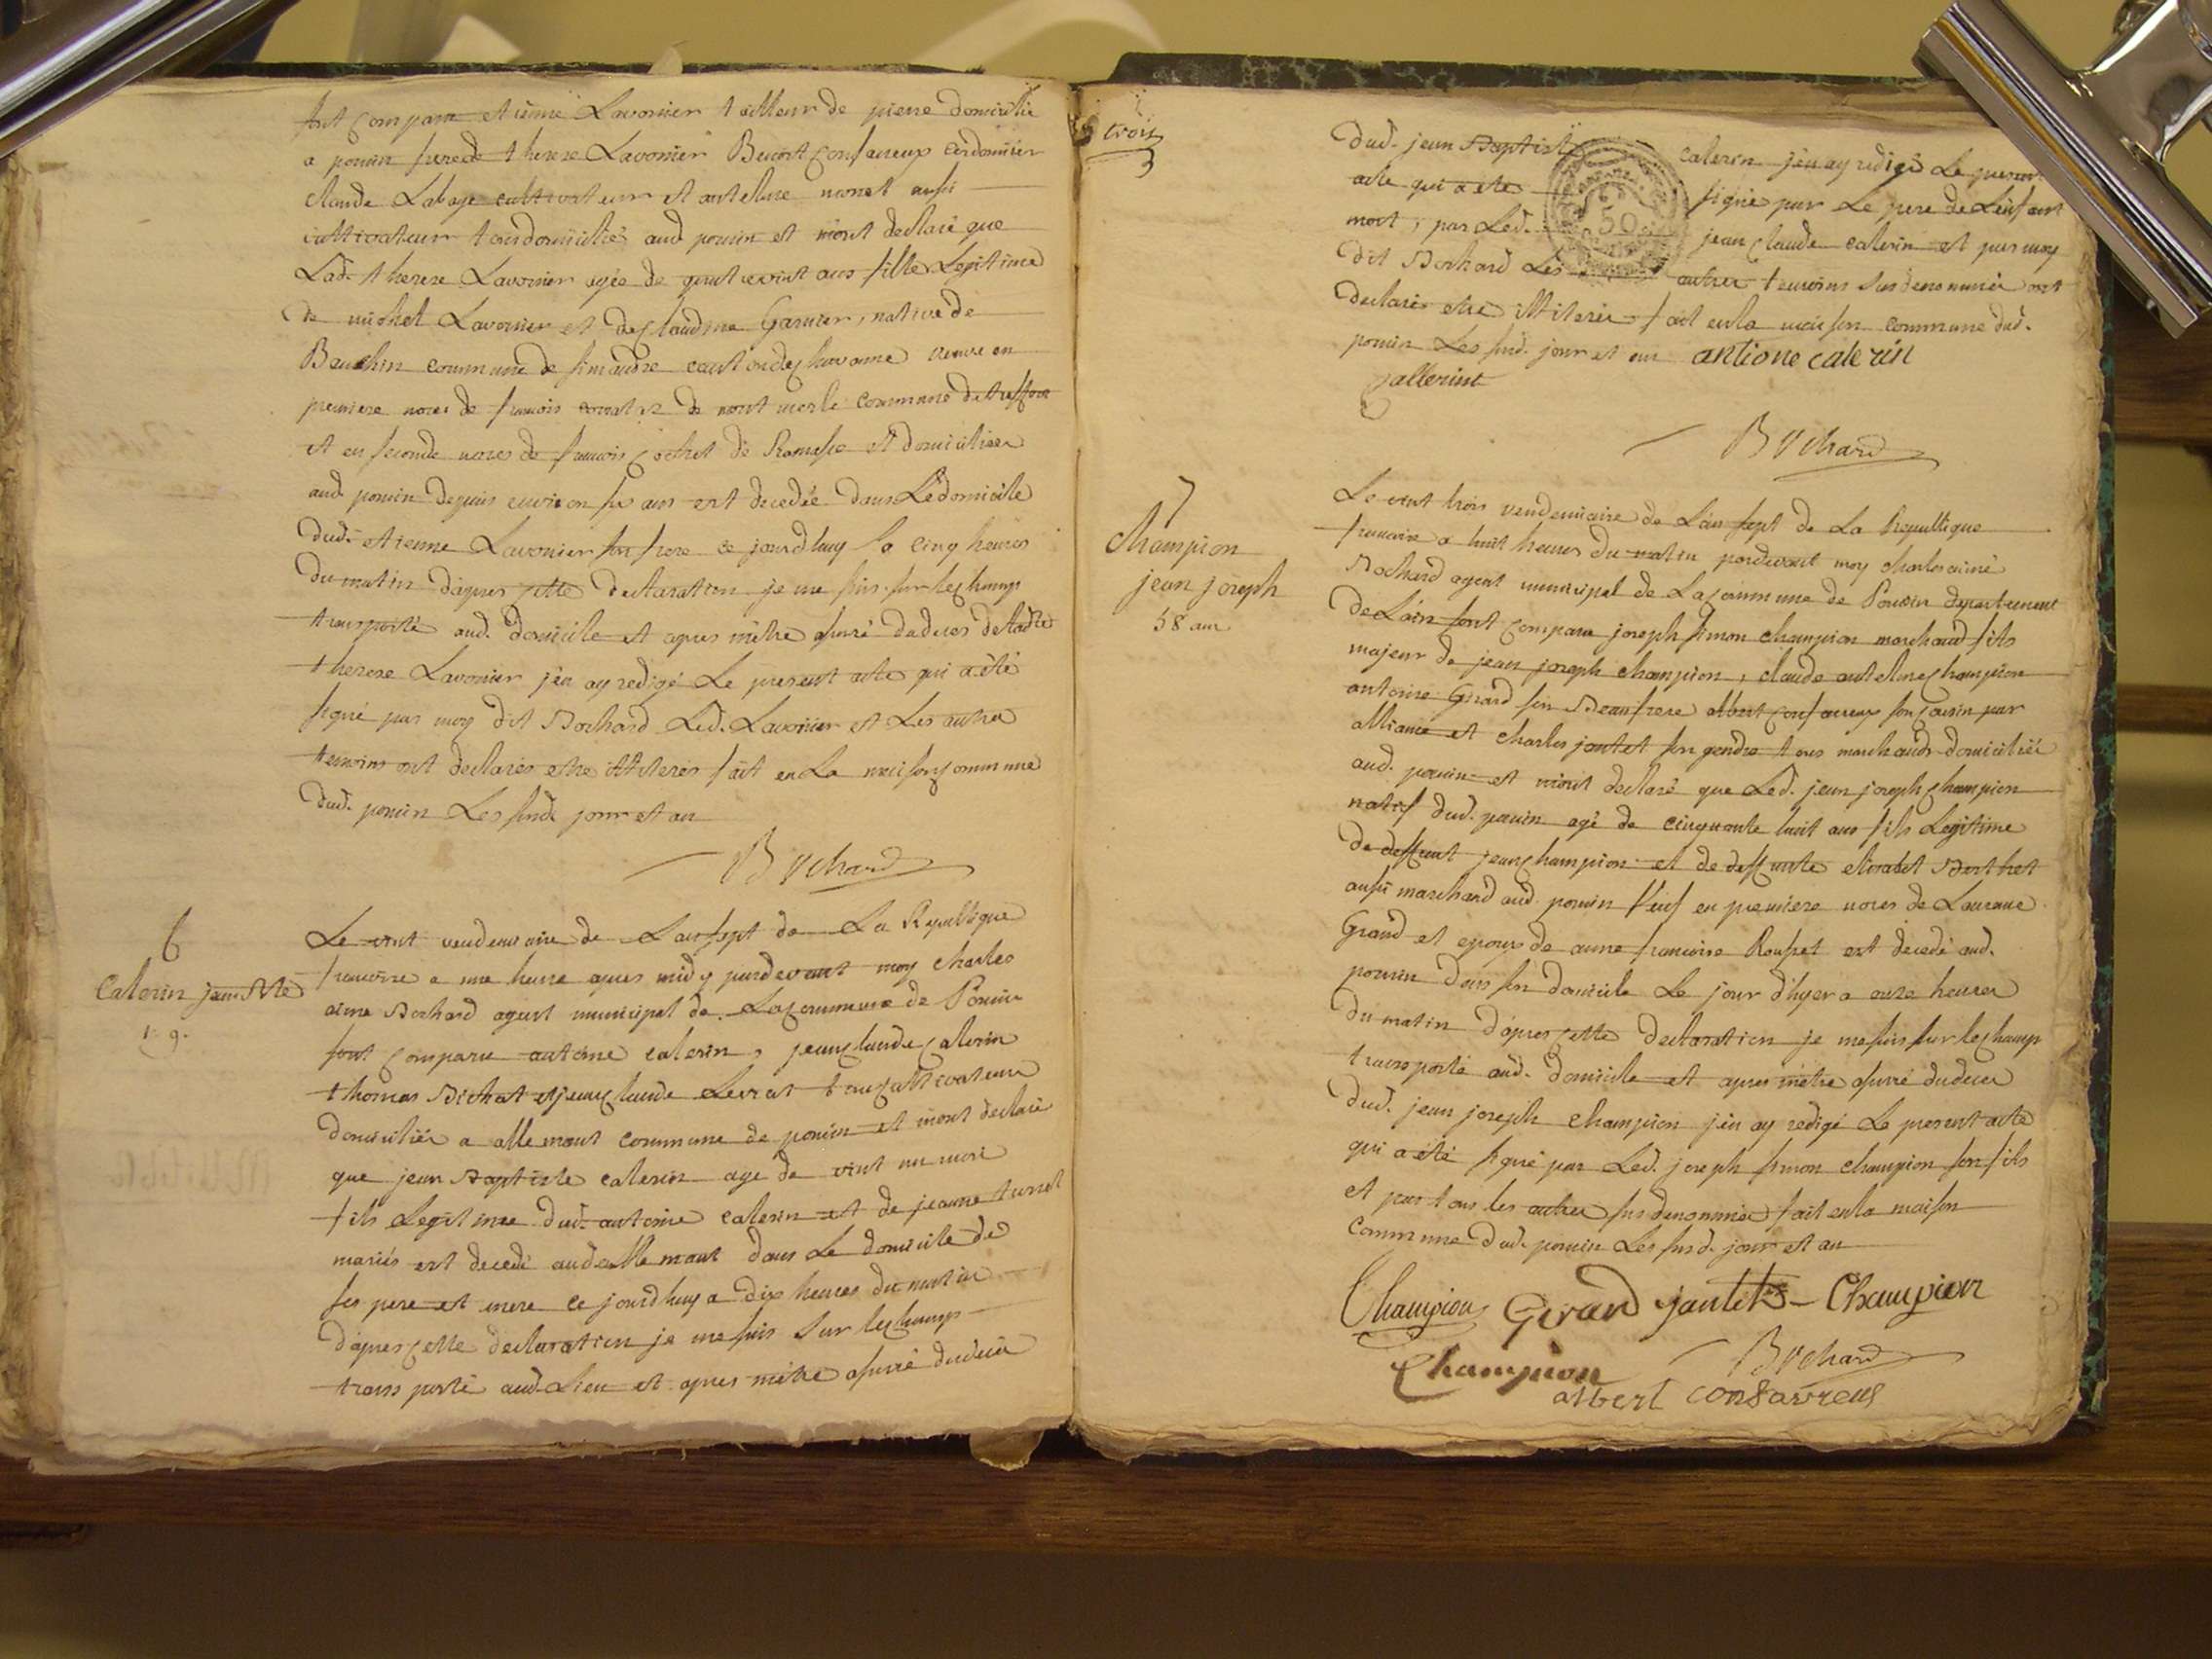 sont comparu etienne Lavonier tailleur de pierre domicilié
a poncin frere de therese Lavonier Benoit Consaveux cordonnier
claude Labaye cultivateur et antelme monet aussi
cultivateur tous domiciliés aud poncin et m'ont declaré que
Lad. therese Lavonier agée de quatrevint ans fille Legitime
de michel Lavonier et de claudine Garnier, native de
commune de simandre canton de chavanne veuve en
premiere noces de francois de mont merle commune de treffort
et en seconde noces de francois Cochet de Romasse et domiciliée
aud. poncin depuis environ six ans est decedée dans Le domicile
dud. etienne Lavonier son frere ce jourdhuy a cinq heures
du matin d'apres cette declaration je me suis sur le champ
transporté aud. domicile et apres m'être assuré du deces de lade
therese Lavonier j'en ay redigé Le present acte qui a été
signé par moy dit Bochard Led. Lavonier et Les autres
temoins ont declarés etre illiterés fait en La maison commune
dud. poncin Les susd. jour et an
Bochard
6
Calerin jean Bte
1. 9.
Le vint vendemiaire de L'an sept de La Republique
francoise a une heure apres midy pardevant moy charles
aimé Bochard agent municipal de La commune de Poncin
sont comparu antoine calerin, jean claude calerin
thomas Bichat et jean claude Levrat tous cultivateurs
domiciliés a allemant commune de poncin et m'ont declaré
que jean Baptiste calerin age de vint un mois
fils Legitime dud. antoine calerin et de jeanne
mariés est decedé aud allemant dans Le domicile de
ses pere et mere ce jourdhuy a dix heures du matin
d'apres cette declaration je me suis sur le champ
transporté aud. Lieu et apres m'être assuré du deces
trois
3
dud. jean Baptiste calerin j'en ay redigé Le present
acte qui a été signé par Le pere de L'enfant
mort, par Led. jean claude calerin et par moy
dit Bochard Les autres temoins susdenommés ont
declarés etre illiterés fait en la maison commune dud.
poncin Les susd. jour et an antione calerin
Callerint
Bochard
7
Champion
jean joseph
58 ans
Le vint trois vendemiaire de L'an sept de La Republique
francoise a huit heures du matin pardevant moy charles aimé
Bochard agent municipal de La commune de Poncin departement
de L'ain sont comparu joseph simon champion marchand fils
majeur de jean joseph champion, claude antelme champion
antoine Girard son Beaufrere albert Consaveux son cousin par
alliance et charles jantet son gendre tous marchands domiciliés
aud. poncin et m'ont declaré que Led. jean joseph champion
natif dud. poncin agé de cinquante huit ans fils Legitime
de deffunt jean champion et de deffunte elizabet Berthet
aussi marchand aud. poncin veuf en premiere noces de Laurance
Grand et epoux de anne francoise Rousset est decedé aud.
poncin dans son domicile Le jour d'hyer a onze heures
du matin d'apres cette declaration je me suis sur le champ
transporté aud. domicile et apres m'être assuré du deces
dud. jean joseph champion j'en ay redigé Le present acte
qui a été signé par Led. joseph simon champion son fils
et par tous les autres susdenommés fait en la maison
commune dud. poncin Les susd. jour et an
Champion Girard jantet Champion
Champion Bochard
albert consavreus